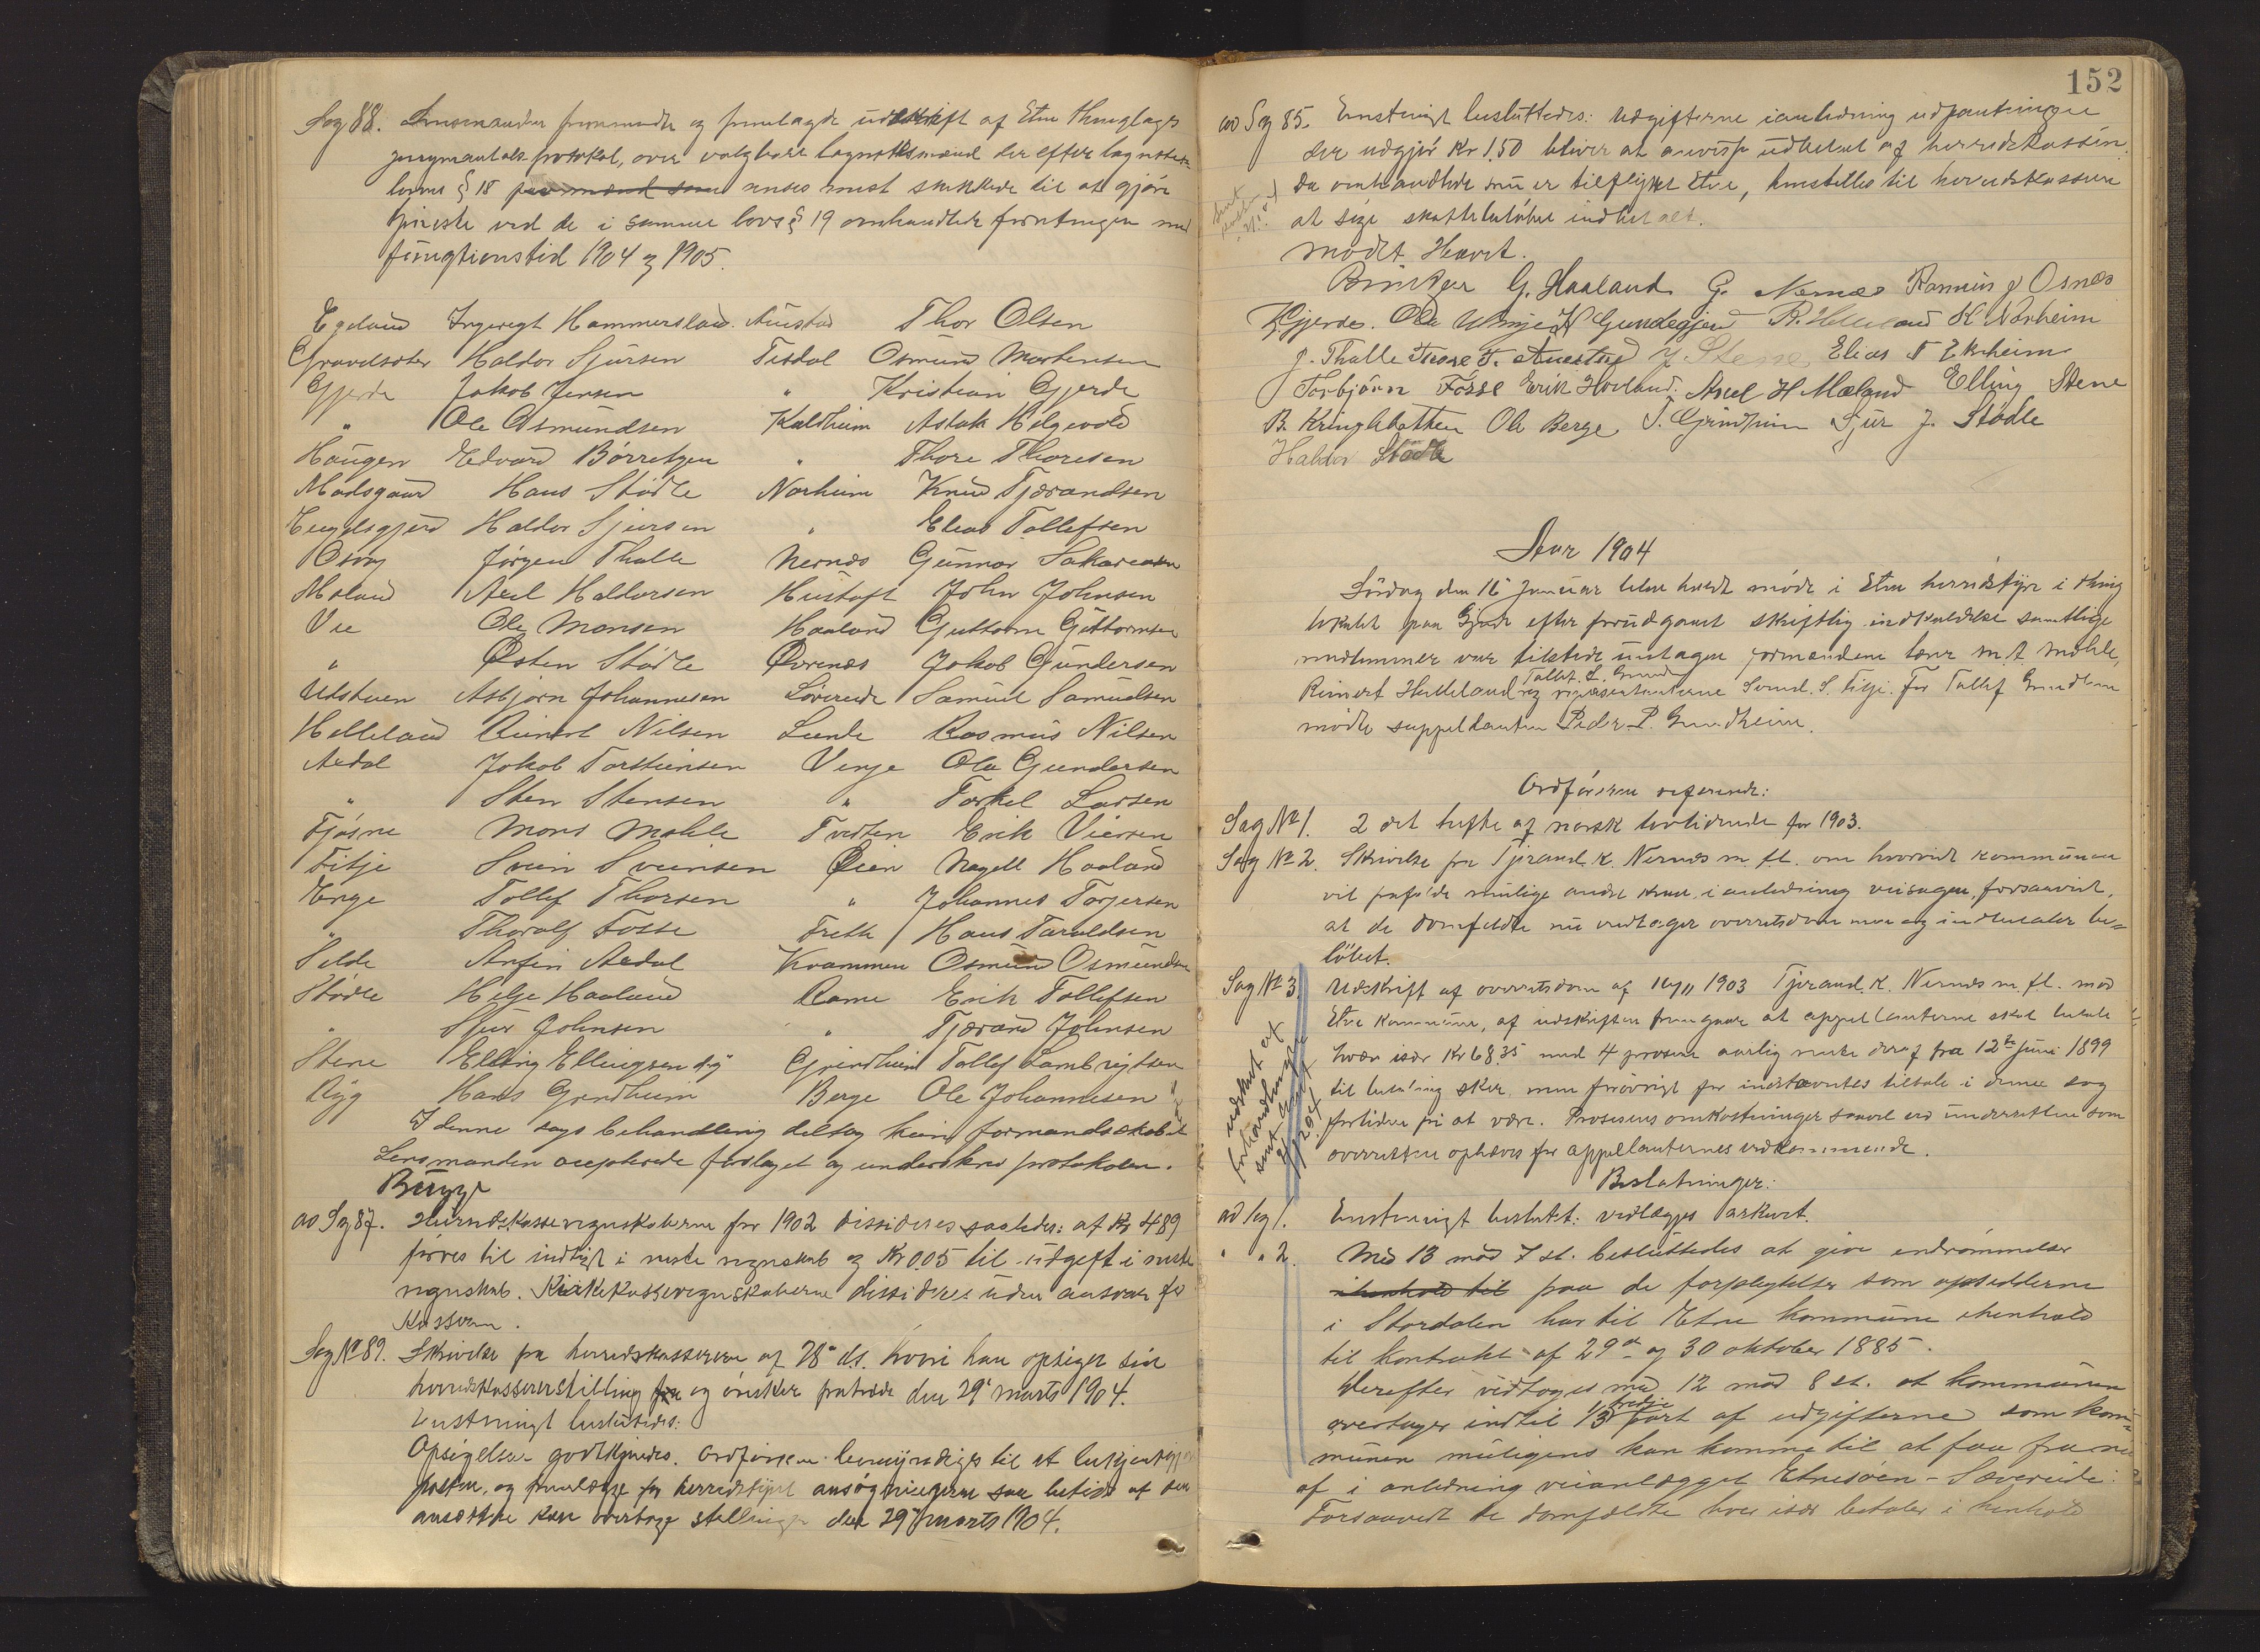 Sag 88. Lensmanden fremmødte og fremlagde udskrift af Etne thinglags
jurymantals protokol, over valgbare lagrettesmænd der efter lagrettes
loven § 18 ansees mest skikkede til at gjøre
tjeneste ved de i samme lovs § 19 omhandlede forretninger med
fungtionstid 1904 og 1905.
Egeland Ingvregt Hammersland. Austad Thor Olsen
Gravelsæter Haldor Sjursen Tesdal Osmund Mortensen
Gjerde Jakob Jensen " Kristian Gjerde
" Ole Osmundsen Kaldheim Aslak Helgevold
Haugen Edvard Børretzen " Thore Thoresen
Madsgaard Hans Stødle Norheim Knud Tjærandsen
Engelsgjerd Haldor Sjursen " Elias Tollefsen
Osvog Jørgen Thalle Nernæs Gunnar Sakariasen
Mæland Axel Haldorsen Hustoft John Johnsen
Vee Ole Monsen Haaland Guttorm Guttormsen
" Østen Stødle Øvrenæs Jakob Gundersen
Utstuen Asbjørn Johannesen Sørereide Samuel Samuelsen
Helleland Reinert Nilsen Lunde Rasmus Nilsen
Aedal Jakob Torsteinsen Vinje Ola Gundersen
" Sten Stensen " Torkel Larsen
Fjøsne Mons Møhle Tvedten Erik Viersen
Fitje Svein Sveinsen Øien Nagell Haaland
Enge Tollef Thorsen " Johannes Torjersen
" Thoralf Fosse Frette Hans Taraldsen
Silde Anfin Aedal Kvammen Osmund Osmundsen
Stødle Helge Haaland Rame Erik Tollefsen
" Sjur Johnsen " Tjærand Johnsen
Stene Elling Ellingsen d.y. Grindheim Tollef Lambregtsen
Ryg Hans Grindheim Berge Ole Johannesen
I denne sags behandling deltog kun formandsskabet
Lensmanden accepterede forslaget og underskrev protokolen.
Brügge
ad Sag 87. Herredskasseregnskaberne for 1902 dissideres saaledes: at Kr 4.89
føres til indtægt i neste regnskab og Kr 0.05 til udgift i neste
regnskab. Kirkekasseregnskaberne dissideres uden ansvar for
Kassereren.
Sag No 89. Skrivelse fra herredskassereren af 28de ds. hvori han opsiger sin
herredskassererstilling og ønsker fratræde den 29de marts 1904.
Enstemigt besluttedes:
Opsigelsen godtkjendes. Ordføreren bemyndiges til at bekjentgjøre
posten, og fremlægge for herredstyret ansøgningerne saa betids at den
ansætte kan overtage stillingen den 29de marts 1904.
152
ad Sag 85. Enstemigt besluttedes: Udgifterne i anledning udpantningen
der udgjør Kr 1.50 bliver at anvise udbetalt af herredskassen.
Da omhandlede nu er tilflyttet Etne, henstilles til herredskassereren
at søge skattebeløbet indbetalt.
Mødet Hævet.
Brinkger G. Haaland G. Nernæs Rasmus J Osnes
K Gjerde. Ola Vinje H Gundegjerd R. Helleland K Norheim
J. Thalle Tore T. Austad J Stene Elias T Ekrheim
Torbjørn Fosse Erik Hovland. Axel H Mæland Elling Stene
B. Kringlebotten Ole Berge T. Grindheim Sjur J. Stødle
Haldor Stødle
Aar 1904
Lördag den 16de Januar blev holdt møde i Etne herredstyre i thing
lokalet paa Gjerde efter forudgaaet skriftlig indkaldelse samtlige
medlemmer var tilstede undtagen formændene M. A. Møhle,
Tollef L. Grindh.
Reinert Helleland og repræsentanterne Svend. S. Fitje. For Tollef Grindheim
mødte suppleanten Peder P. Grindheim.
Ordføreren refererede:
Sag No 1. 2 det hefte af norsk lovtidende for 1903.
Sag No 2. Skrivelse fra Tjerand K. Nernæs m. fl. om hvorvidt kommunen
vil frafalde mulige andre krav i anledning veisagen, forsaavidt,
at de domfeldte nu vedtager overretsdommen og indbetaler be=
løbet.
Sag No 3. Udskrift af overretsdom af 16/11 1903 Tjerand. K. Nernæs m. fl. mod
Etne Kommune, af udskriften fremgaar at appellanterne skal betale
hver især Kr 68.35 med 4 prosent aarlig rente deraf fra 12te Juni 1899
til betaling sker, men forøvrigt for indstævntes tiltale i denne sag
for fri at være. Prosessens omkostninger saavel ved underretten som
overretten ophæves for appellanternes vedkommende.
udskrift af
forhandlingerne
sendt
Beslutninger:
ad Sag 1. Enstemigt besluttet: vedlægges arkivet.
" " 2. Med 13 mod 7 st. besluttedes at give indrømmelser
ihenhold til paa de forpligtelser som opsidderne
i Stordalen har til Etne kommune ihenhold
til kontrakt af 29de og 30 oktober 1885.
Derefter vedtoges med 12 mod 8 st. at kommunen
tredje
overtager indtil 1/3 part af udgifterne som kom=
munen muligens kan komme til at faa
af i anledning veianlægget Etnesøen - Sævereide:
Forsaavidt de domfældte hver især betaler i henhold